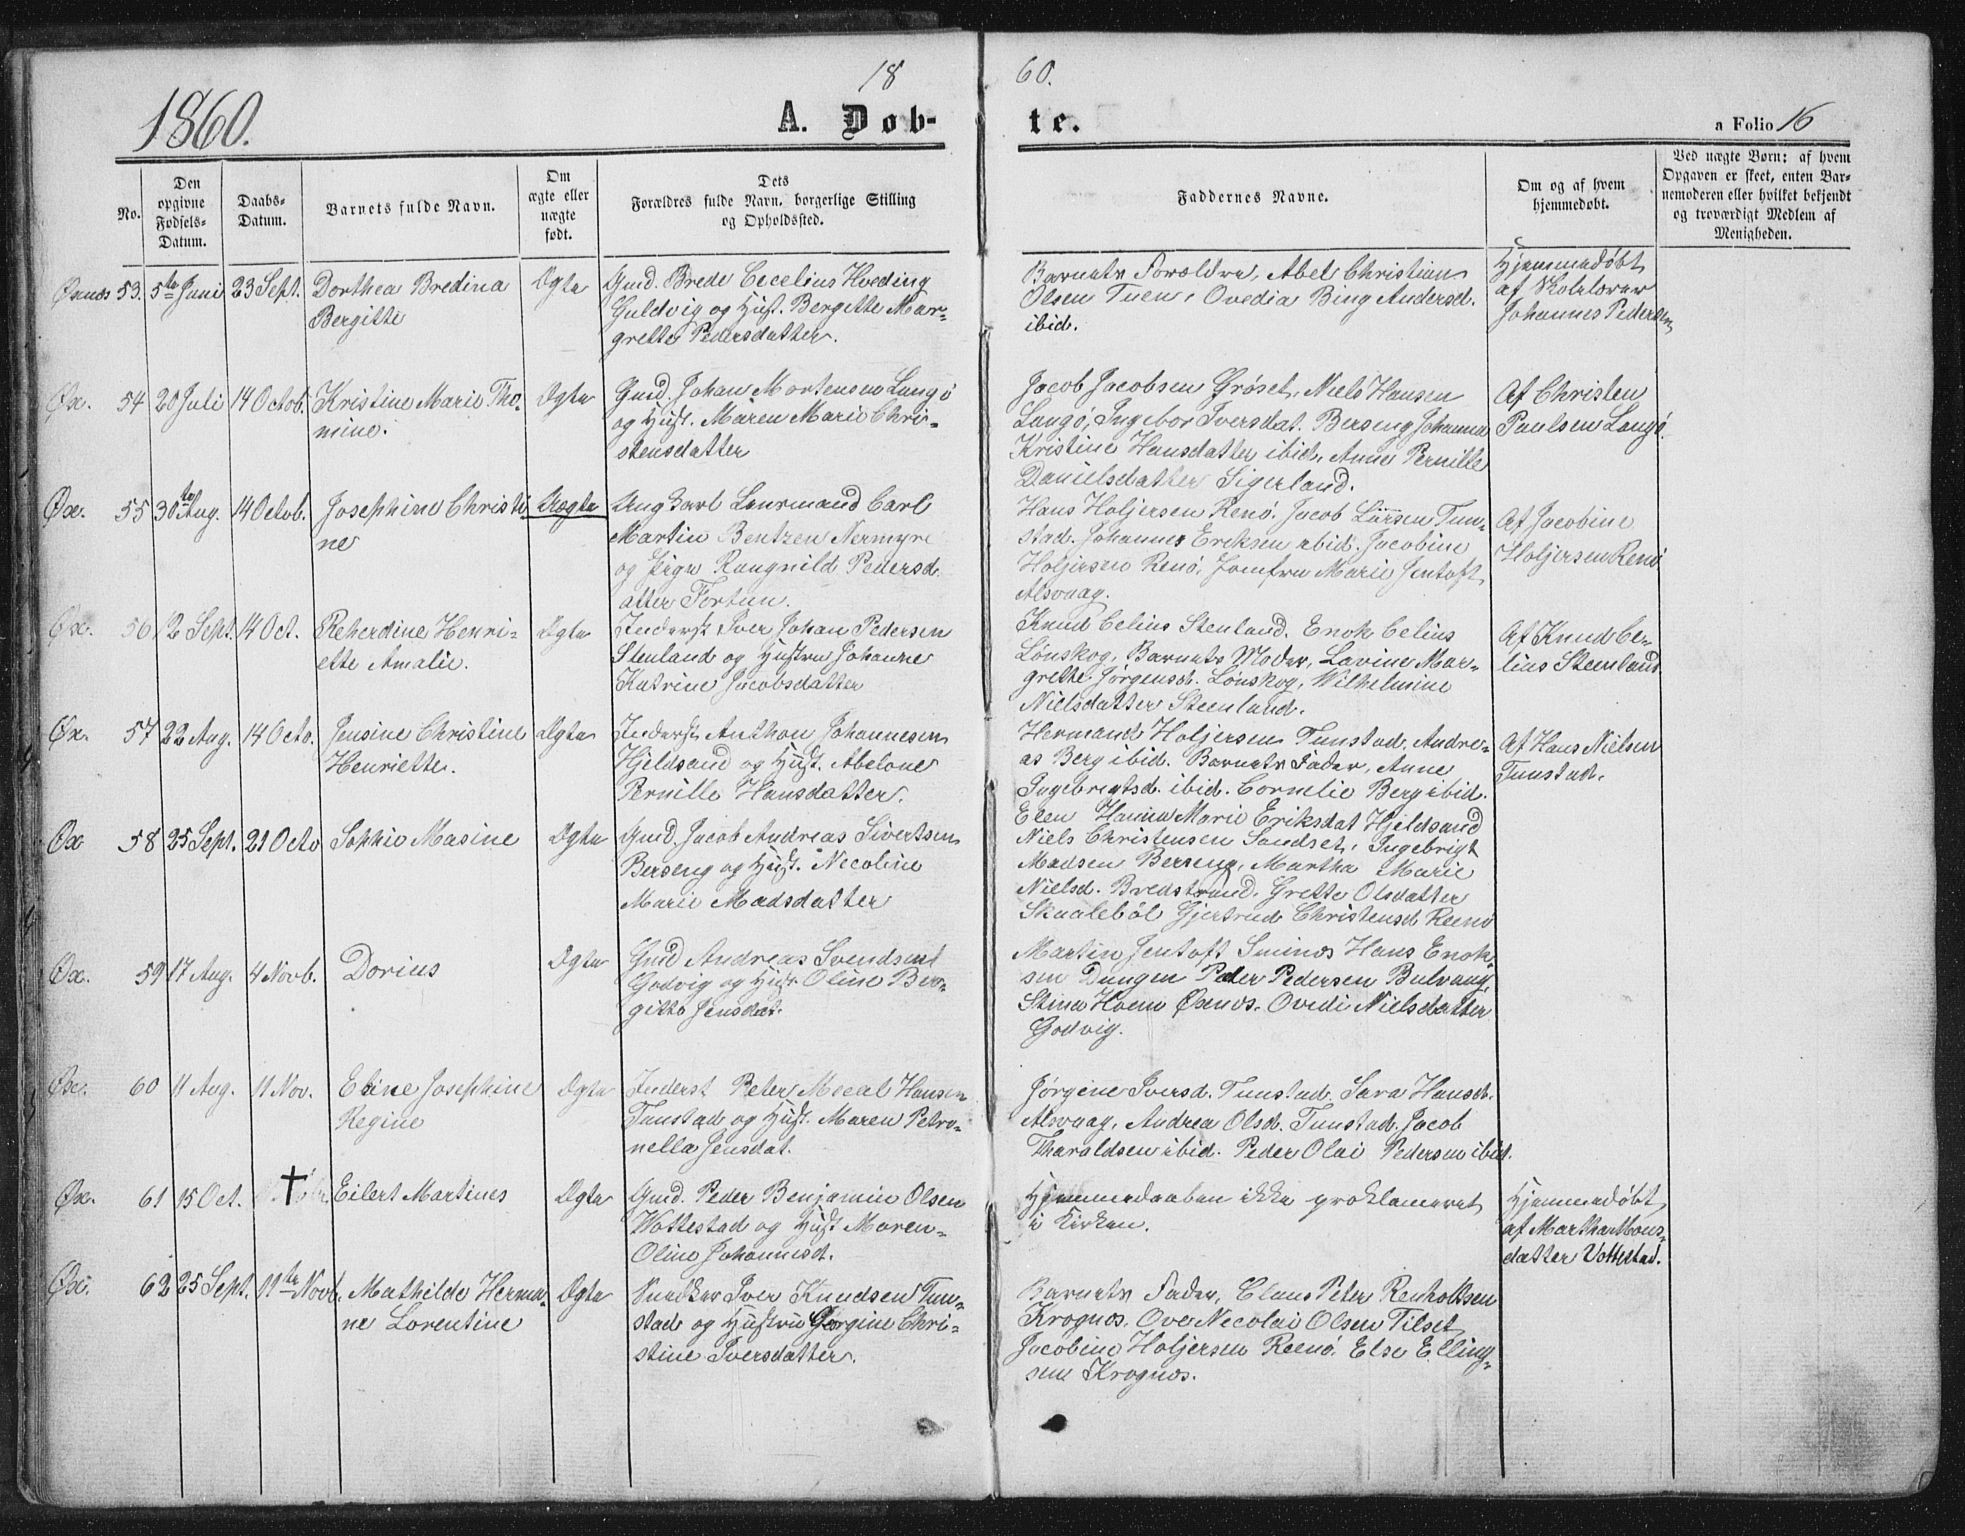 18
60.
1860.
A. Døb-
te.
a Folio 16
No.
Den opgivne Fødsels-Datum.
Daabs-Datum.
Barnets fulde Navn.
Om ægte eller uægte født.
Dets Forældres fulde Navn, borgerlige Stilling og Opholdssted.
Faddernes Navne.
Om og af hvem hjemmedøbt.
Ved uægte Børn: af hvem Opgaven er skeet, enten Barnemoderen eller hvilket bekjendt og troværdigt Medlem af Menigheden.
Øxnæs 53. 5te Juni 23 Sept. Dorthea Bredina
Bergitte
Ægte
Gmd. Brede Cecelius Hveding
Guldvig og Hust. Bergitte Mar-
grethe Pedersdatter.
Barnets Forældre, Abel Christian
Olsen Tuen, Ovedia Bing Andersd.
ibid.
Hjemmedøbt
af Skolelærer
Johannes Pedersen
Øx. 54 20 Juli 14 Octob. Kristine Marie Tho-
mine.
Ægte
Gmd. Johan Mortensen Langø
og Hust. Maren Marie Chri-
stensdatter
Jacob Jacobsen Grøset, Niels Hansen
Langø, Ingebor Iversdat. Berseng Johanna
Kristine Hansdatter ibid. Anne Pernille
Danielsdatter Sigerland.
Af Christen
Paulsen Langø.
Øx. 55 30te Aug. 14 Octob. Josephine Christi-
ne
Uægte
Ungkarl Lensmand Carl
Martin Bentzen Nermyre
og Pige Rangnild Pedersd
atter Fortun.
Hans Holjersen Renø. Jacob Larsen Tun-
stad. Johannes Eriksen ibid. Jacobine
Holjersen Renø, Jomfru Marie Jentoft
Alsvaag.
Af Jacobine
Holjersen Renø
Øx. 56 12 Sept. 14 Oct. Reherdine Henri-
ette Amalie.
Ægte
Inderst Iver Johan Pedersen
Stenland og Hustru Johanne
Katrine Jacobsdatter
Knud Celius Stenland. Enok Celius
Lønskog, Barnets Moder, Lavine Mar-
grethe Jørgensd. Lønskog, Wilhelmine
Nielsdatter Steenland.
Af Knud Ce-
lius Steenland.
Øx. 57 22 Aug. 14 Octo. Jensine Christine
Henriette.
Ægte
Inderst Anthon Johannesen
Hjeldsand og Hust. Abelone
Pernille Hansdatter.
Hermand Holjersen Tunstad. Andre-
as Berg ibid. Barnets Fader, Anne
Ingebrigtsd. ibid. Cornelie Berg ibid.
Elen Hanna Marie Eriksdat Hjeldsand
Af Hans Nielsen
Tunstad.
Øx 58 25 Sept. 21 Octo Sophie Masine
Ægte
Gmd. Jacob Andreas Sivertsen
Berseng og Hust. Necoline
Marie Madsdatter
Niels Christensen Sandset, Ingebrigt
Madsen Berseng, Martha Marie
Nielsd. Bredstrand. Grette Olsdatter
Skaalebøl Gjertrud Christensd Reenø
Øx. 59 17 Aug. 4 Novb. Dorius
Ægte
Gmd Andreas Svendsen
Godvig og Hust. Oline Ber-
gitte Jensdat.
Martin Jentoft Sminæs Hans Enok-
sen Dungen Peder Pedersen Bulvaag,
Stina Hveem Øxnæs. Ovedi Nielsdatter
Godvig.
Øx. 60 11 Aug. 11 Nov. Eline Josephine
Regine
Ægte
Inderst Peter Mecal Hansen
Tunstad og Hust. Maren Petro-
nella Jensdat.
Jørgine Iversd. Tunstad. Sara Hansd.
Alsvaag, Andrea Olsd. Tunstad. Jacob
Tharaldsen ibid. Peder Olai Pedersen ibid.
Øx. 61 15 Oct. † Eilert Martines
Ægte
Gmd. Peder Benjamin Olsen
Wottestad og Hust Maren
Oline Johannesd.
Hjemmedaaben ikke proklameret
i Kirken.
Hjemmedøbt
af Martha Mons-
datter Vottestad.
Øx. 62 25 Sept. 11te Novb. Mathilde Hermi-
ne Lorentine
Ægte
Snedker Iver Knudsen Tun-
stad og Hustru Georgine Chri-
stine Iversdatter.
Barnets Fader, Claus Peter Renholtsen
Krognæs. Ove Necolai Olsen Tilset,
Jacobine Holjersen Reenø, Else Elling-
sen Krognæs.